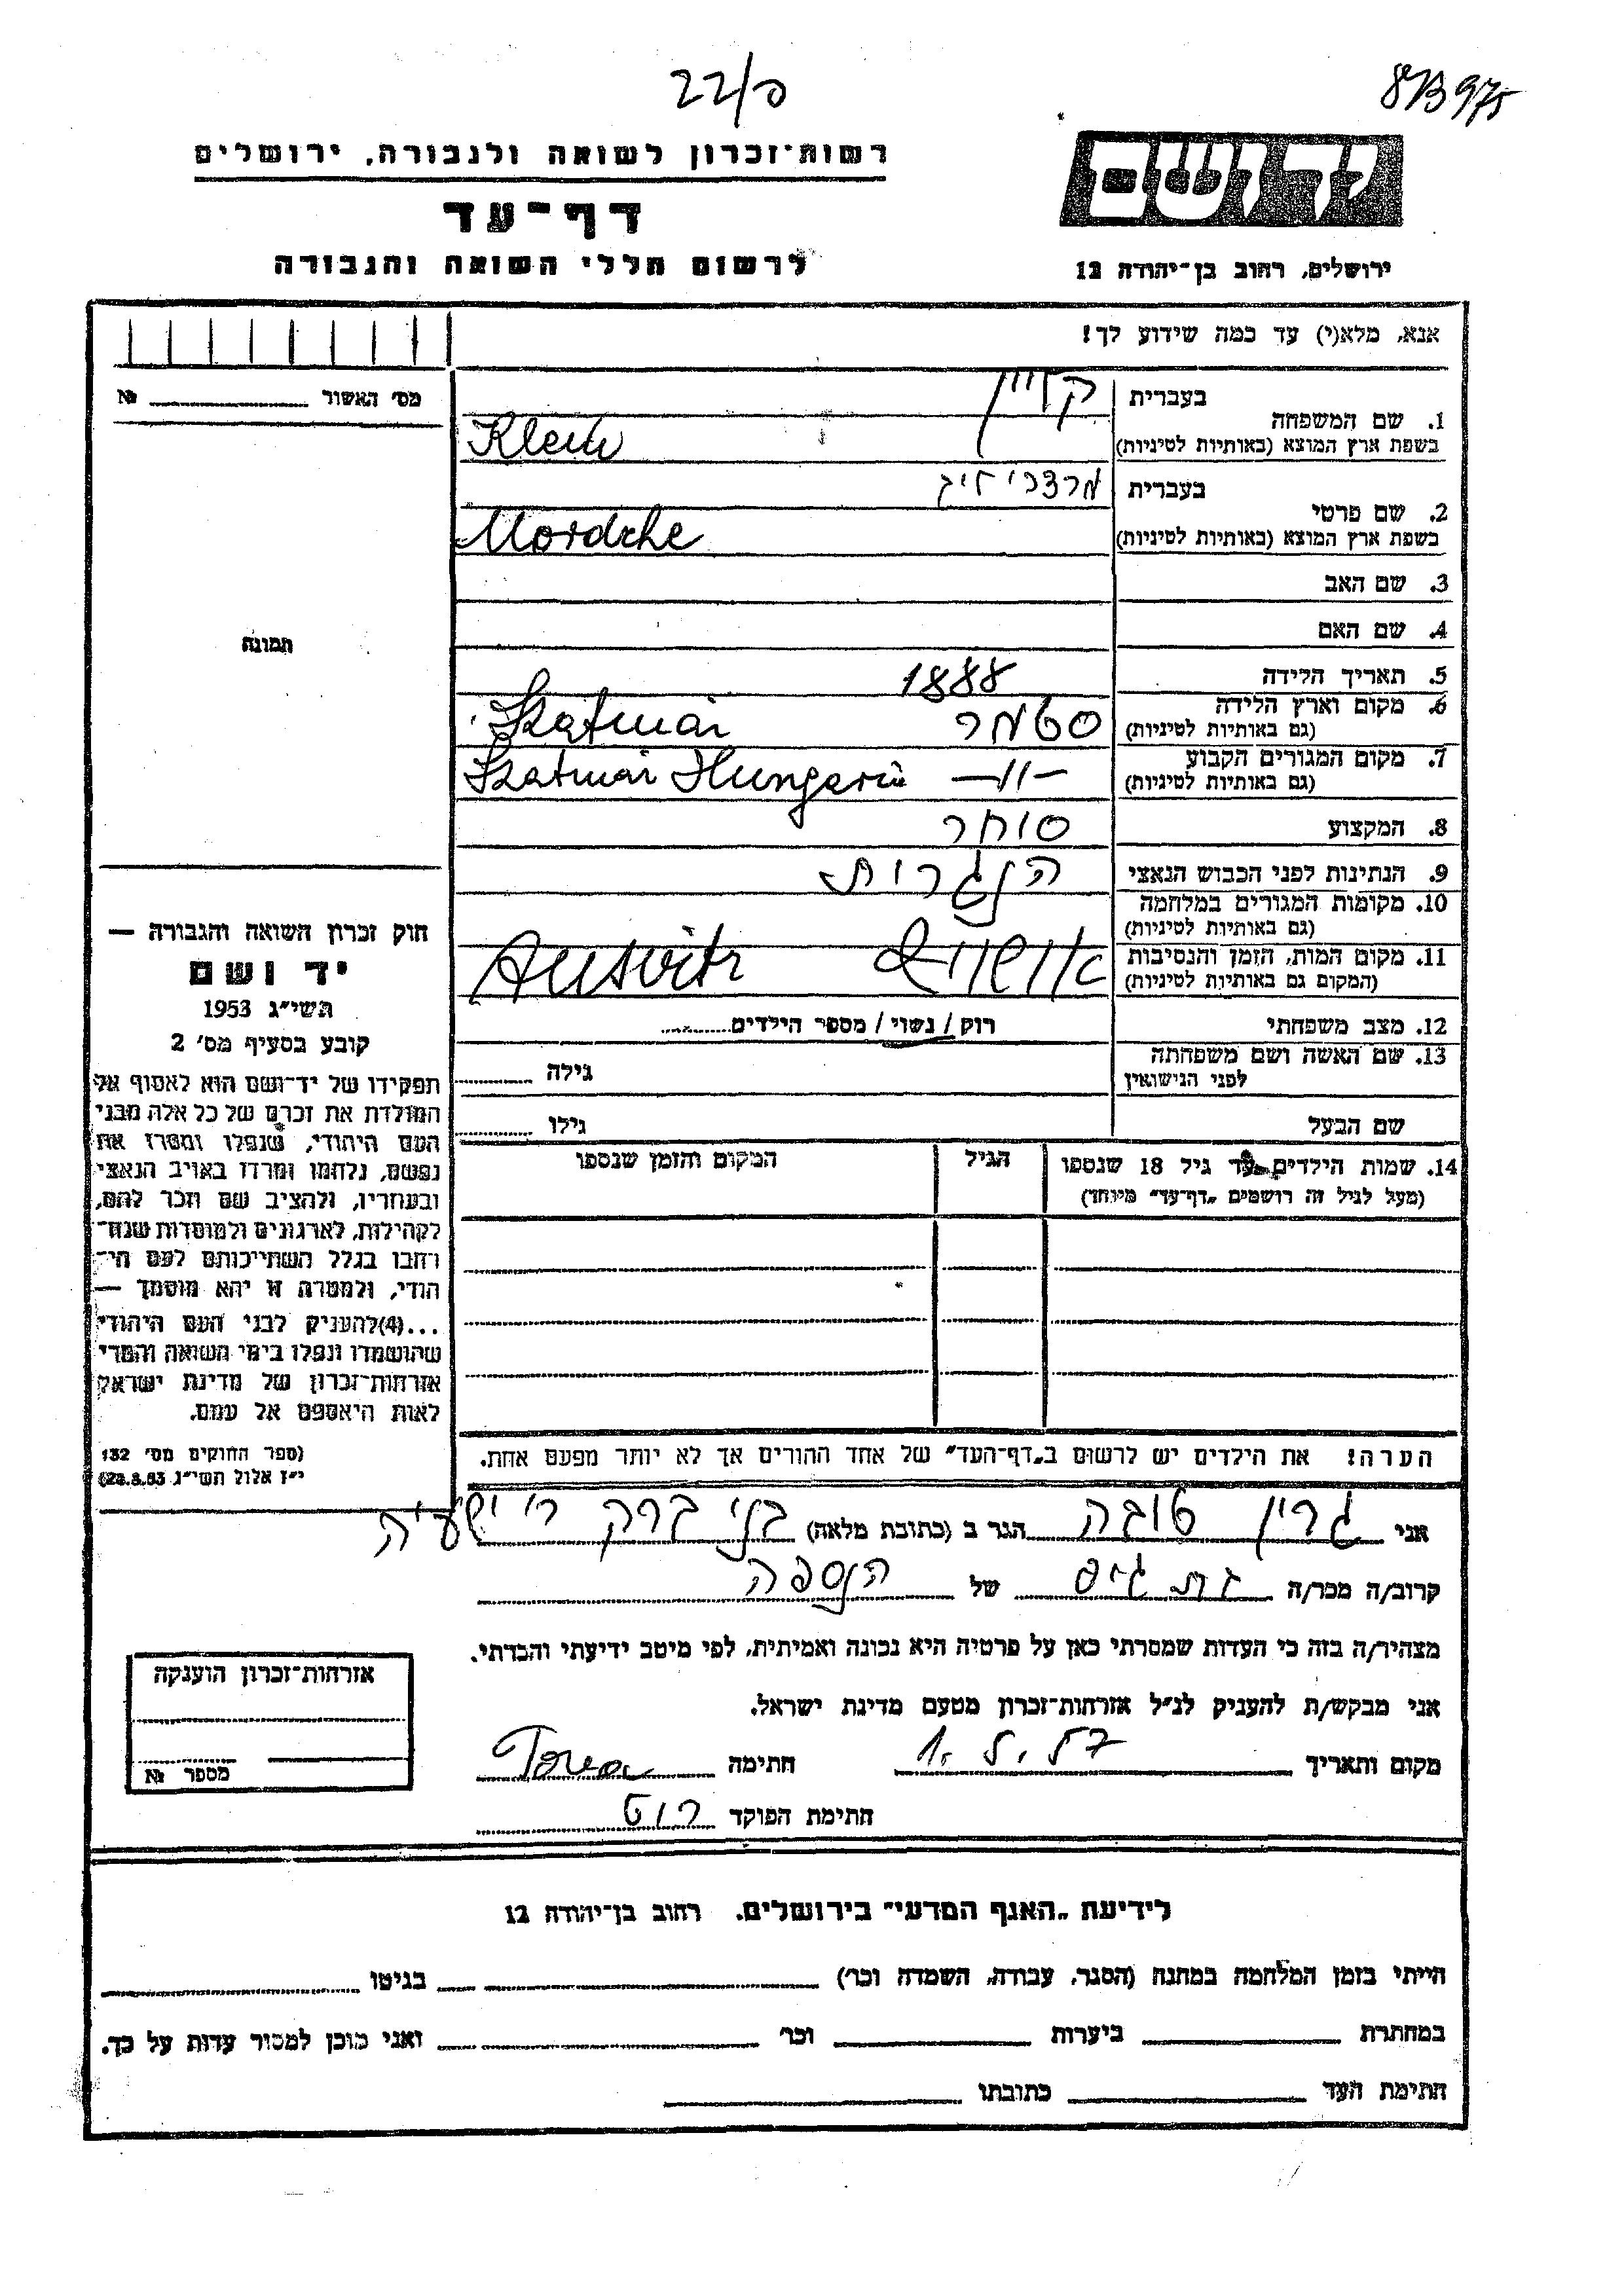 22/ס
8/B 975
רשות־זכרון לשואה ולגבורה, ירושלים
דף־עד
לרשום חללי השואה והגבורה
יד ושם
ירושלים, רחוב בן־יהודה 12
אנא, מלא(י) עד כמה שידוע לך!
מס׳ האשור № 
בעברית קליין
1. שם המשפחה
בשפת ארץ המוצא (באותיות לטיניות) Klein
בעברית מרדכי
2. שם פרטי
בשפת ארץ המוצא (באותיות לטיניות) Mordche
3. שם האב
4. שם האם
תמונה
5. תאריך הלידה 1888
6. מקום וארץ הלידה סטמר Szatmár
(גם באותיות לטיניות)
7. מקום המגורים הקבוע —״— Szatmár Hungaria
(גם באותיות לטיניות)
8. המקצוע סוחר
9. הנתינות לפני הכבוש הנאצי הנגרית
10. מקומות המגורים במלחמה
(גם באותיות לטיניות)
11. מקום המות, הזמן והנסיבות אושוויץ Ausvitz
(המקום גם באותיות לטיניות)
12. מצב משפחתי רוק / נשוי / מספר הילדים
13. שם האשה ושם משפחתה גילה
לפני הנישואין
שם הבעל גילו
14. שמות הילדים עד גיל 18 שנספו הגיל המקום והזמן שנספו
(מעל לגיל זה רושמים „דף־עד״ מיוחד)
הערה! את הילדים יש לרשום ב„דף־העד״ של אחד ההורים אך לא יותר מפעם אחת.
חוק זכרון השואה והגבורה —
יד ושם
תשי״ג 1953
קובע בסעיף מס׳ 2
תפקידו של יד־ושם הוא לאסוף אל
המולדת את זכרם של כל אלה מבני
העם היהודי, שנפלו ומסרו את
נפשם, נלחמו ומרדו באויב הנאצי
ובעוזריו, ולהציב שם וזכר להם,
לקהילות, לארגונים ולמוסדות שנח־
רחבו בגלל השתייכותם לעם הי־
הודי, ולמטרה זו יהא מוסמך —
...(4)להעניק לבני העם היהודי
שהושמדו ונפלו בימי השואה והמרי
אזרחות־זכרון של מדינת ישראל
לאות היאספם אל עמם.
(ספר החוקים מס׳ 132
י״ז אלול תשי״ג 28.8.53)
אני גרין טובה הגר ב (כתובת מלאה) בני ברק ר׳ ישעיה
קרוב/ה מכר/ה גיס של הנספה
מצהיר/ה בזה כי העדות שמסרתי כאן על פרטיה היא נכונה ואמיתית, לפי מיטב ידיעתי והכרתי.
אני מבקש/ת להעניק לנ״ל אזרחות־זכרון מטעם מדינת ישראל.
מקום ותאריך חתימה Tova
חתימת הפוקד רוט
אזרחות־זכרון הוענקה
מספר №
לידיעת „האגף המדעי״ בירושלים. רחוב בן־יהודה 12
הייתי בזמן המלחמה במחנה (הסגר, עבודה, השמדה וכר׳) בגיטו
במחתרת ביערות וכר׳ ואני מוכן למסור עדות על כך.
חתימת העד כתובתו